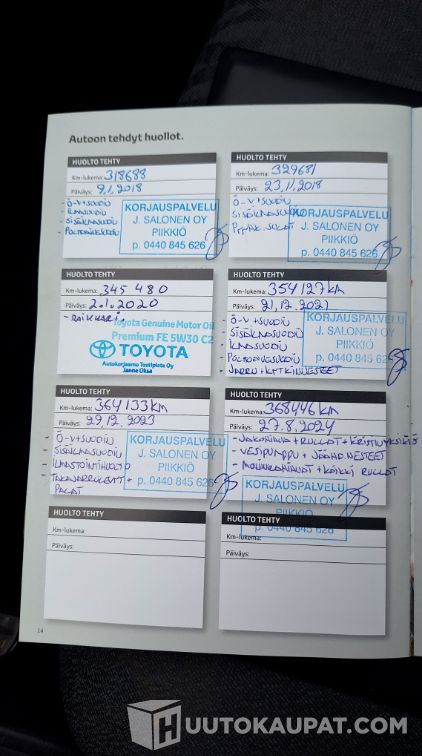 Autoon tehdyt huollot.
HUOLTO TEHTY
Km-lukema: 318688
Päiväys: 9.1.2018
- Ö-V+SUODIN
- ILMASUODIN
- SISÄILMASUODIN
KORJAUSPALVELU
J. SALONEN OY
PIIKKIÖ
p. 0440 845 626
HUOLTO TEHTY
Km-lukema: 329681
Päiväys: 23.11.2018
Ö-V+SUODIN
SISÄILMASUODIN
KORJAUSPALVELU
J. SALONEN OY
PIIKKIÖ
p. 0440 845 626
HUOLTO TEHTY
Km-lukema: 345 480
Päiväys: 2.1.2020
Toyota Genuine Motor Oil
Premium FE 5W30 C2
TOYOTA
Autokorjaamo Testipiste Oy
HUOLTO TEHTY
Km-lukema: 354127 KM
Päiväys: 21.12.2021
- Ö-V+SUODIN
- SISÄILMASUODIN
- ILMASUODIN
- POLTTOAINESUODIN
- JARRU+KYTKINNESTEET
KORJAUSPALVELU
J. SALONEN OY
PIIKKIÖ
p. 0440 845 626
HUOLTO TEHTY
Km-lukema: 364133 KM
Päiväys: 29.12.2023
- Ö-V+SUODIN
SISÄILMASUODIN
ILMASTOINTIHUOLTO
TAKAJARRULEVYT+
PALAT
KORJAUSPALVELU
J. SALONEN OY
PIIKKIÖ
p. 0440 845 626
HUOLTO TEHTY
Km-lukema: 368446 KM
Päiväys: 27.8.2024
- JAKOHIHNA+RULLAT+
- VESIPUMPPU+JÄÄHD.NESTEET
- MONIURAHIHNAT+KAIKKI RULLAT
KORJAUSPALVELU
J. SALONEN OY
PIIKKIÖ
p. 0440 845 626
HUOLTO TEHTY
Km-lukema:
Päiväys:
HUOLTO TEHTY
Km-lukema:
Päiväys:
14
HUUTOKAUPAT.COM